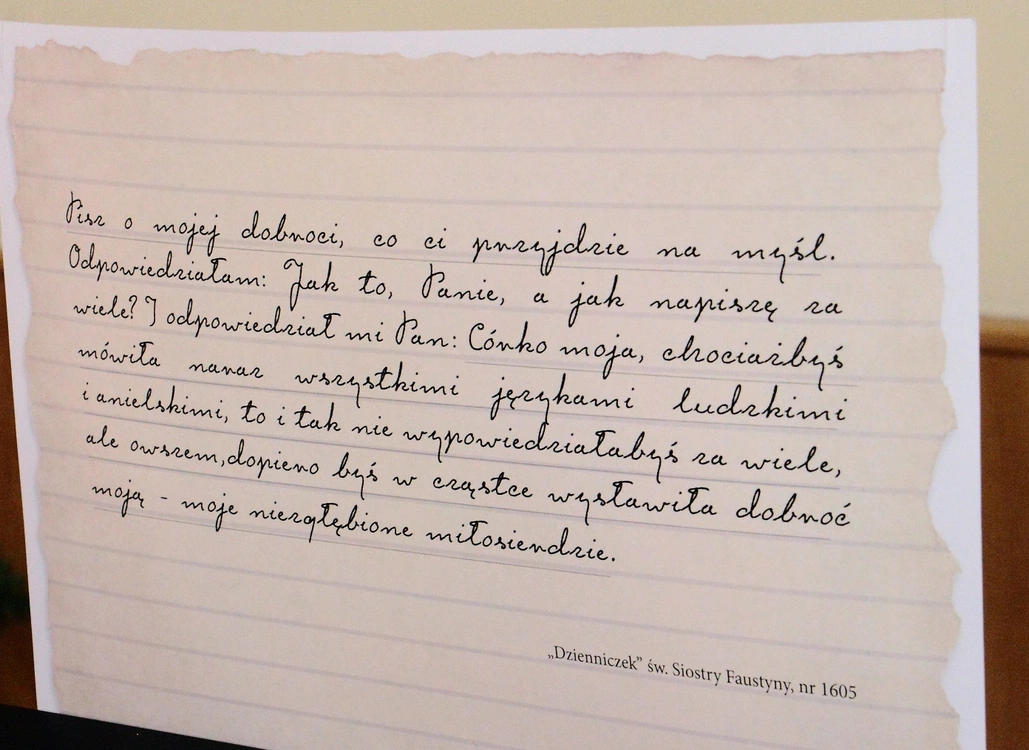 Pisz o mojej dobroci, co ci przyjdzie na myśl.
Odpowiedziałam: Jak to, Panie, a jak napiszę za
wiele? I odpowiedział mi Pan: Córko moja, chociażbyś
mówiła naraz wszystkimi językami ludzkimi
i anielskimi, to i tak nie wypowiedziałabyś za wiele,
ale owszem, dopiero byś w cząstce wysławiła dobroć
moją - moje niezgłębione miłosierdzie.
„Dzienniczek” św. Siostry Faustyny, nr 1605